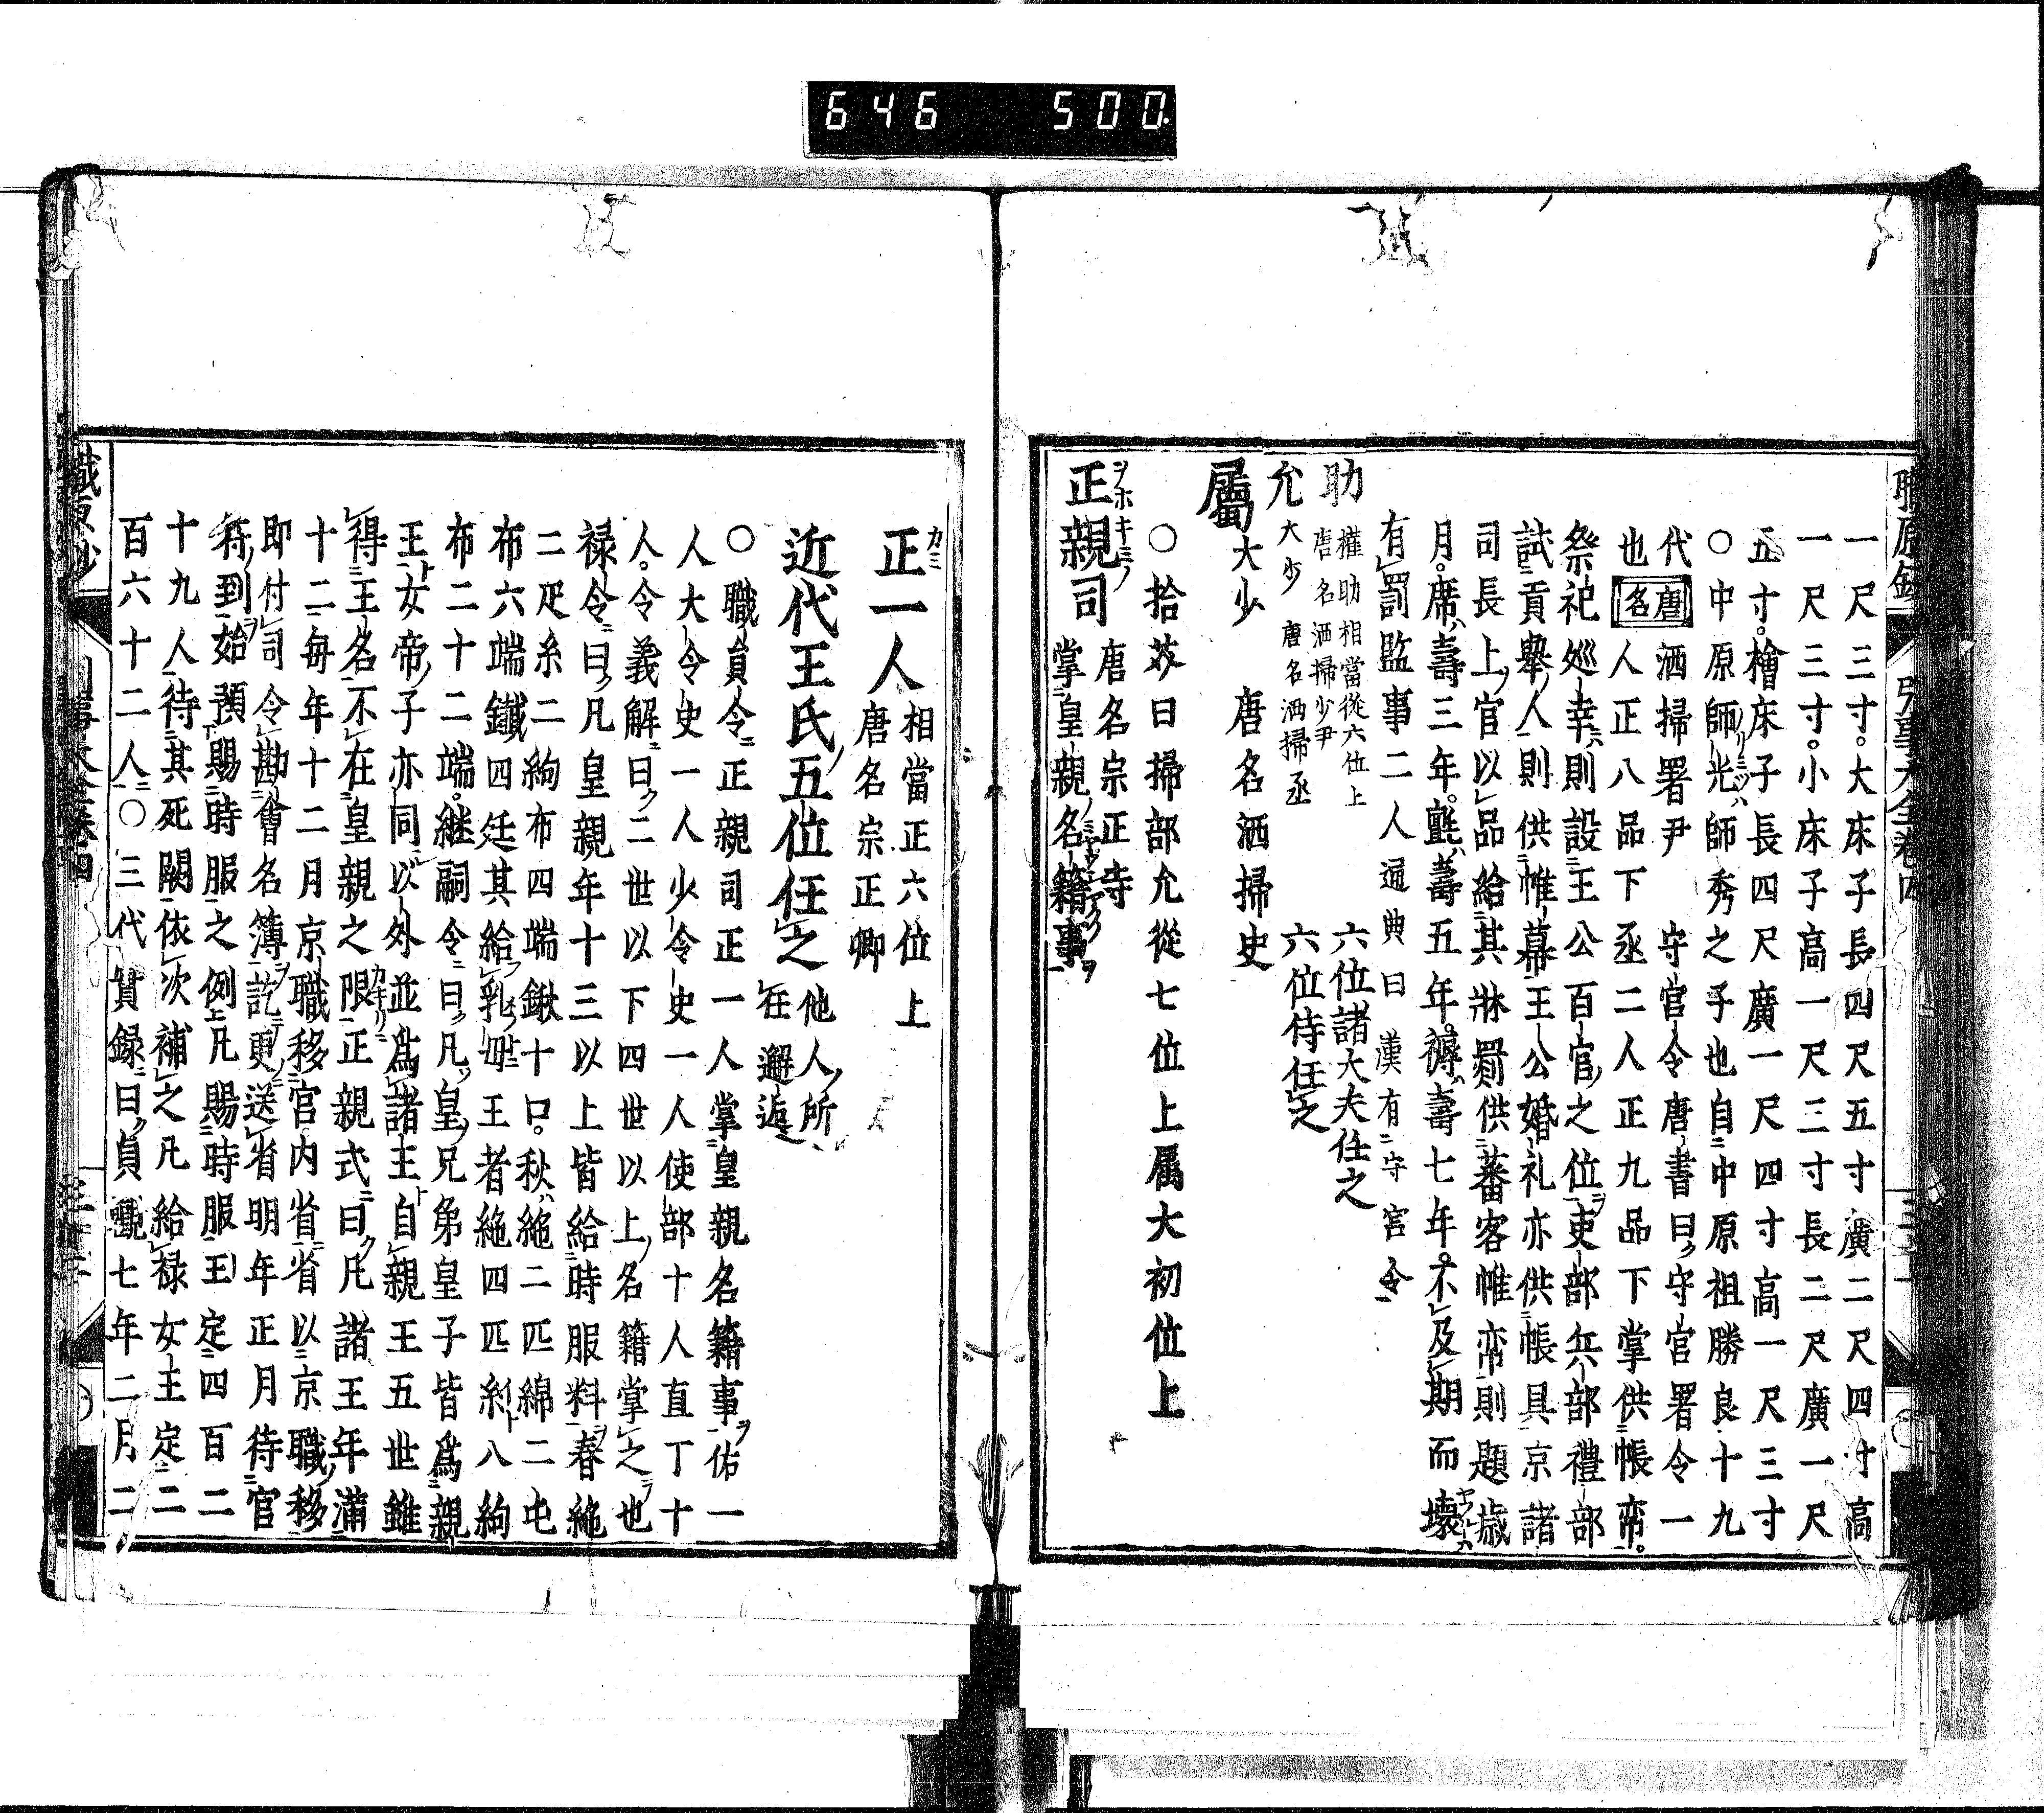 646 500.
一尺三寸。大床子長四尺五寸廣二尺四寸高
一尺三寸。小床子高一尺三寸長二尺廣一尺
五寸。檜床子長四尺廣一尺四寸高一尺三寸
〇中原師光師秀之子也自中原祖勝良十九
代 唐名 洒掃署尹 守宮令唐書曰守宮署令一
也 人正八品下丞二人正九品下掌供帳帟。
祭祀巡幸則設王公百官之位吏部兵部禮部
試貢舉人則供帷幕王公婚礼亦供帳具京諸
司長上官以品給其牀罽供蕃客帷帟則題歳
月。席壽三年。氈壽五年。褥壽七年。不及期而壊
有罰監事二人通典曰漢有守宮令
助 權助相當從六位上 唐名洒掃少尹 六位諸大夫任之
允 大少 唐名洒掃丞 六位侍任之
屬 大少 唐名洒掃史
〇拾芥曰掃部允從七位上属大初位上
正親司 唐名宗正寺 掌皇親名籍事
正一人 相當正六位上 唐名宗正卿
近代王氏五位任之 他人所在邂逅
〇職員令正親司正一人掌皇親名籍事佑一
人大令史一人少令史一人使部十人直丁十
人。令義解曰二世以下四世以上名籍掌之也
禄令曰凡皇親年十三以上皆給時服料春絁
二疋糸二絇布四端鍬十口。秋絁二匹綿二屯
布六端鐵四廷其給乳母王者絁四匹糸八絇
布二十二端。継嗣令曰凡皇兄弟皇子皆為親
王女帝子亦同以外並為諸王自親王五世雖
得王名不在皇親之限正親式曰凡諸王年満
十二毎年十二月京職移宮内省省以京職移
即付司令勘會名簿訖更送省明年正月待官
符到始預賜時服之例凡賜時服王定四百二
十九人待其死闕依次補之凡給禄女王定二
百六十二人〇三代實録曰貞觀七年二月二